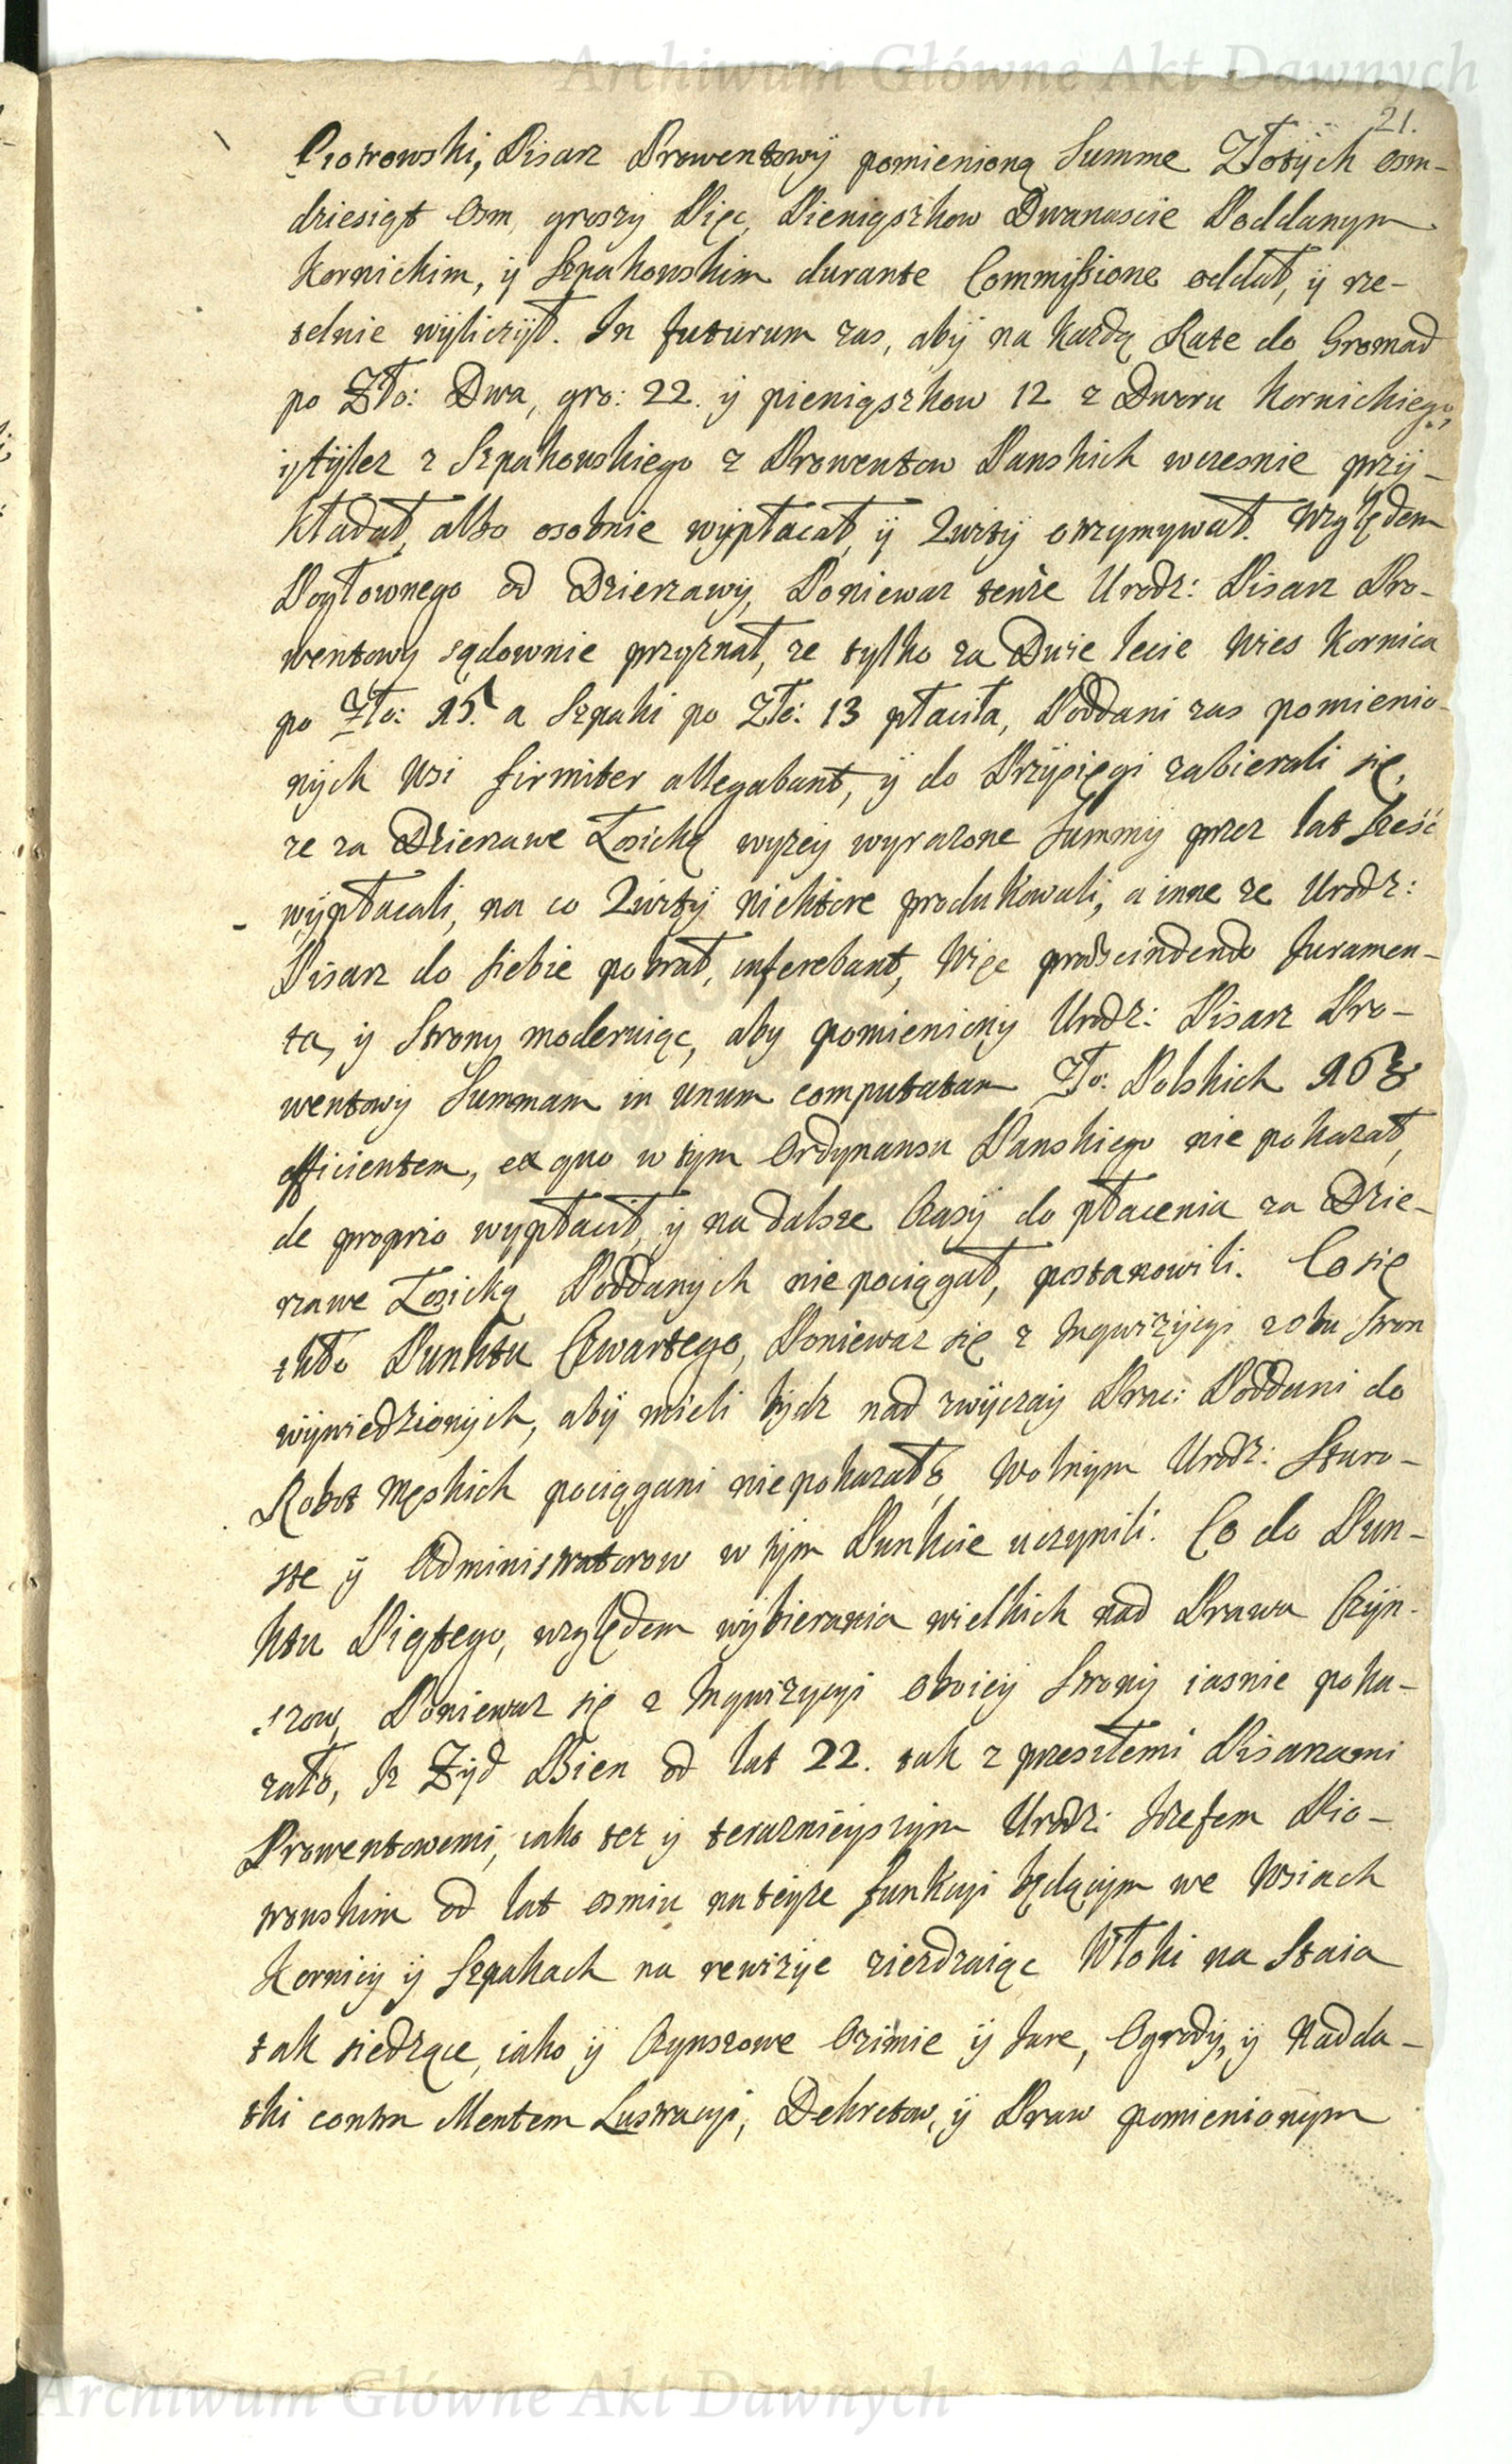 Archiwum Główne Akt Dawnych
21.
Piotrowski, Pisarz Prowentowÿ pomienioną Summe Złotÿch osm-
dziesiąt Osm, groszy Pięc, Pieniąszkow Dwanascie Poddanym
Kornickim, ÿ Szpakowskim durante Commissione oddał, ÿ rze-
telnie wÿliczÿł. In futurum zas, abÿ na każdą Rate do Gromad
po Zło: Dwa, gro: 22. ÿ pieniąszkow 12 z Dworu Kornickiego,
ÿ tÿlez z Szpakowskiego z Prowentow Panskich wczesnie przÿ-
kładał, albo osobnie wÿpłacał, ÿ Qwitÿ otrzymywał. Względem
Pogłownego od Dzierzawÿ, Poniewaz tenże Urodz: Pisarz Pro-
wentowy sądownie przyznał, ze tylko za Dwie lecie Wies Kornica
po Zło: 25. a Szpaki po Zło: 13 płaciła, Poddani zas pomienio-
nÿch Wsi firmiter allegabant, ÿ do Przÿsięgi zabierali się,
ze za Dzierzawe Łosicką wyzeÿ wyrazone Summÿ przez lat Sześć
wÿpłacali, na co Qwitÿ niektore produkowali, a inne ze Urodz:
Pisarz do siebie pobrał, inferebant, Więc præscindendo Juramen-
ta, ÿ Strony moderuiąc, aby pomieniony Urodz: Pisarz Pro-
wentowÿ Summam in unum computatam Zło: Polskich
efficientem, ex quo w tym Ordynansu Panskiego nie pokazał,
de proprio wypłacił, ÿ na dalsze Czasÿ do płacenia za Dzie-
rzawe Łosicką Poddanych nie pociągał, postanowili. Co się
tkło Punktu Czwartego, Poniewaz się z Inqwizÿcyi z obu Stron
wÿwiedzionÿch, abÿ mieli bÿdz nad zwÿczaÿ Prac: Poddani do
Robot Męskich pociągani nie pokazało, Wolnÿm Urodz: Staro-
ste ÿ Administratorow w tÿm Punkcie uczynili. Co do Pun-
ktu Piątego, względem wÿbierania wielkich nad Prawa Czÿn-
szow, Poniewaz się z Inqwizycyi oboieÿ Stronÿ iasnie poka-
zało, Iz Zÿd Bien od lat 22. tak z przeszłemi Pisarzami
Prowentowemi, iako tez ÿ teraznieÿszÿm Urodz: Jozefem Pio-
trowskim od lat osmiu na teÿze funkcÿi będącÿm we Wsiach
Kornicÿ ÿ Szpakach na rewizÿe ziezdzaiąc Włoki na Staia
tak siedzące, iako ÿ Czynszowe Ozimie ÿ Jare, Ogrodÿ, ÿ Nadda-
tki contra Mentem Lustracyi, Dekretow, ÿ Praw pomienionÿm
Archiwum Główne Akt Dawnych